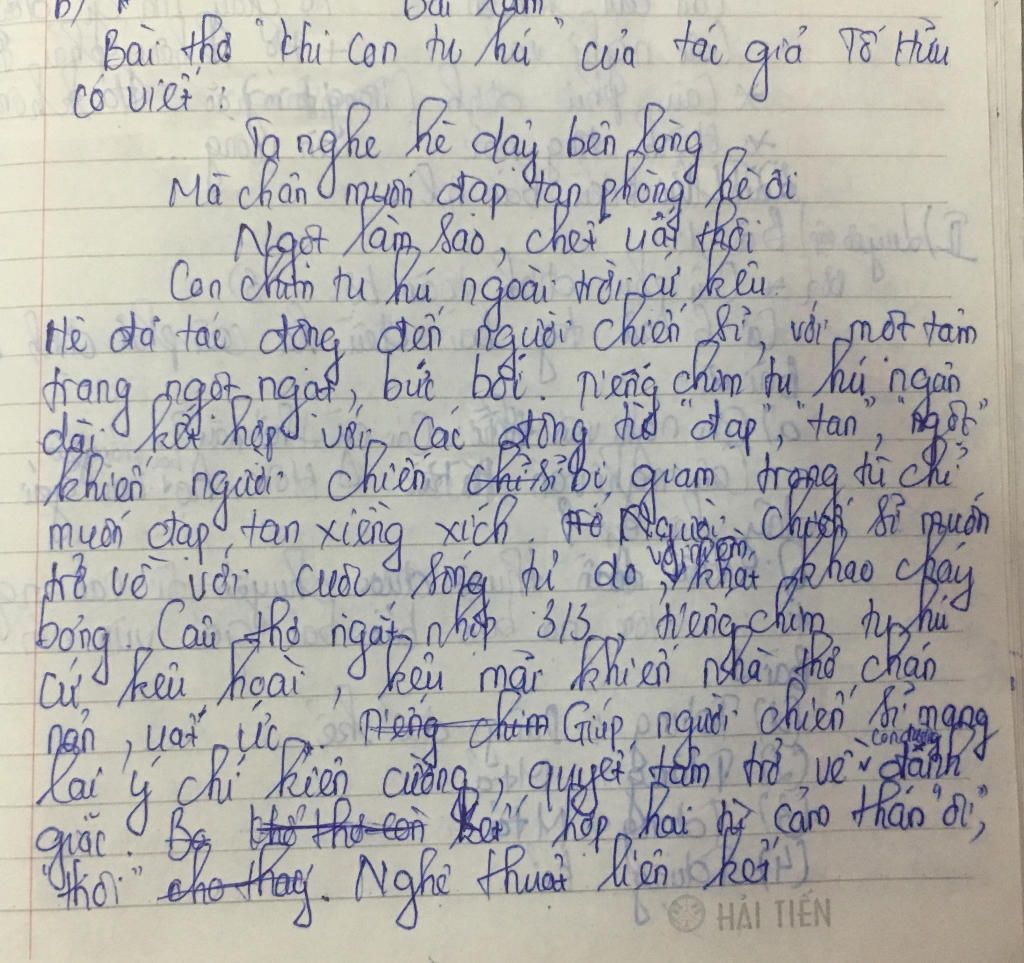 b)
Bài làm
Bài thơ "khi con tu hú" của tác giả Tố Hữu
có viết:
Ta nghe hè dậy bên lòng
Mà chân muốn đạp tan phòng hè ôi
Ngột làm sao, chết uất thôi
Con chim tu hú ngoài trời cứ kêu.
Hè đã tác động đến người chiến sĩ, với một tâm
trạng ngột ngạt, bức bối. Tiếng chim tu hú ngân
dài kết hợp với các động từ "đạp", "tan", "ngột"
khiến người chiến sĩ bị giam trong tù chỉ
muốn đạp tan xiềng xích. Người chiến sĩ muốn
trở về với cuộc sống tự do, với niềm khát khao cháy
bỏng. Câu thơ ngắt nhịp 3/3, tiếng chim tu hú
cứ kêu hoài, kêu mãi khiến nhà thơ chán
nản, uất ức. Tiếng chim Giúp người chiến sĩ mang
lại ý chí kiên cường, quyết tâm trở về con đường đánh
giặc. thơ con kết hợp hai từ cảm thán "ôi",
"thôi" cho thấy. Nghệ thuật liên kết
HẢI TIẾN